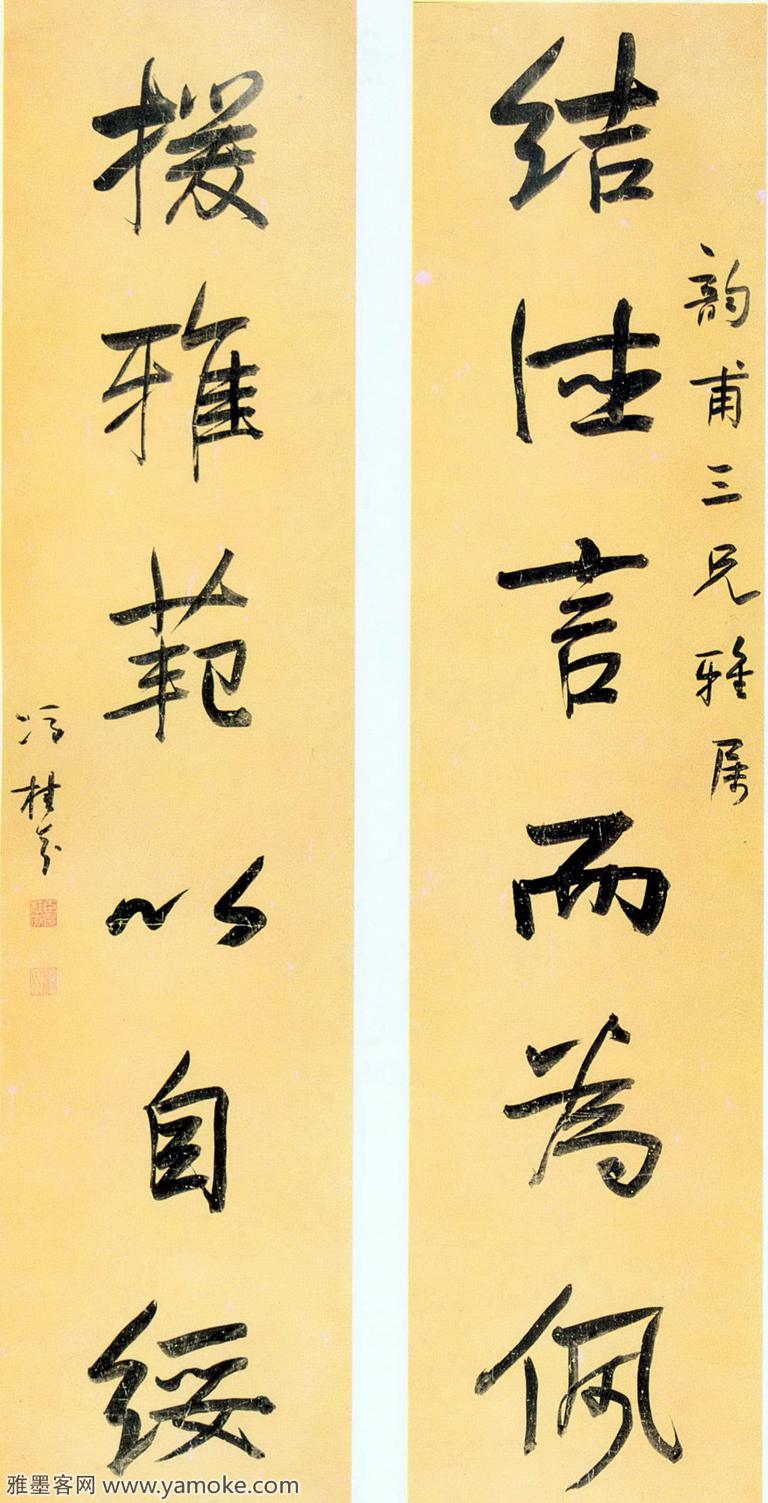 韻甫三兄雅属
結德言而為佩
援雅範以自綏
馮桂芬
雅墨客网 www.yamoke.com